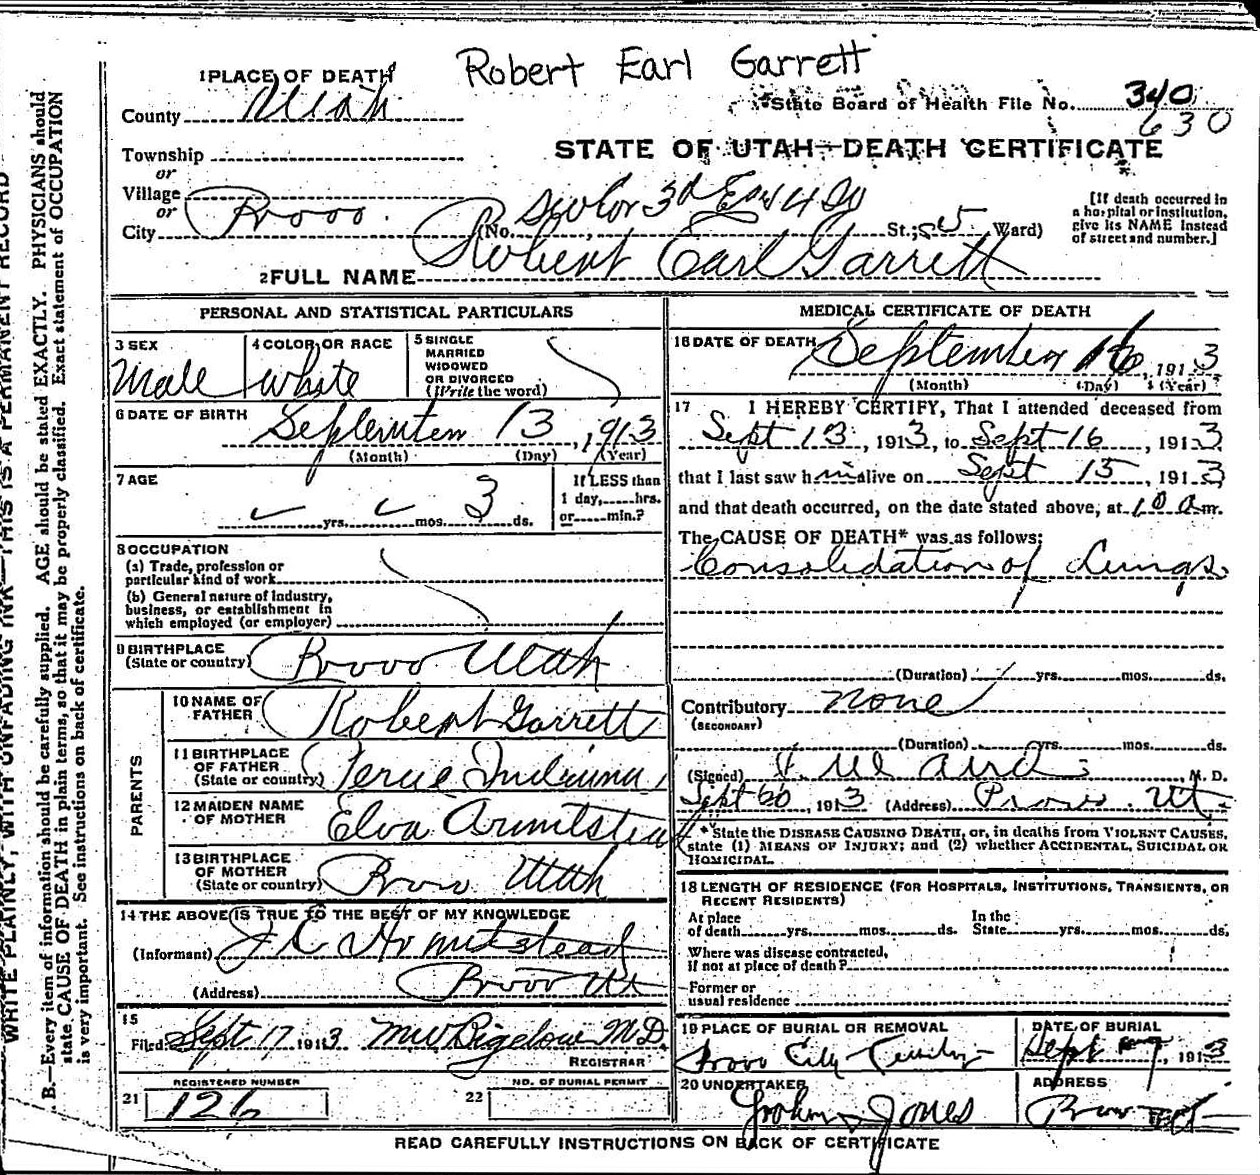 Robert Earl Garrett
1 PLACE OF DEATH
County Utah
State Board of Health File No. 340
630
Township
or
Village
or
City Provo
STATE OF UTAH—DEATH CERTIFICATE
(No. 3d St.; 5 Ward)
[If death occurred in
a hospital or institution,
give its NAME instead
of street and number.]
2 FULL NAME Robert Earl Garrett
PERSONAL AND STATISTICAL PARTICULARS
3 SEX
Male
4 COLOR OR RACE
white
5 SINGLE
MARRIED
WIDOWED
OR DIVORCED
(Write the word)
6 DATE OF BIRTH
September 13, 1913
(Month) (Day) (Year)
7 AGE
yrs. mos. 3 ds.
If LESS than
1 day, hrs.
or min.?
8 OCCUPATION
(a) Trade, profession or
particular kind of work
(b) General nature of industry,
business, or establishment in
which employed (or employer)
9 BIRTHPLACE
(State or country) Provo Utah
PARENTS
10 NAME OF
FATHER Robert Garrett
11 BIRTHPLACE
OF FATHER
(State or country) Indiana
12 MAIDEN NAME
OF MOTHER Elva Armitstead
13 BIRTHPLACE
OF MOTHER
(State or country) Provo Utah
14 THE ABOVE IS TRUE TO THE BEST OF MY KNOWLEDGE
(Informant) J C Armitstead
(Address) Provo Ut
15
Filed Sept 17 1913 M W Bigelow M.D.
REGISTRAR
REGISTERED NUMBER
21 126
NO. OF BURIAL PERMIT
22
MEDICAL CERTIFICATE OF DEATH
16 DATE OF DEATH
September 16, 1913
(Month) (Day) (Year)
17 I HEREBY CERTIFY, That I attended deceased from
Sept 13, 1913, to Sept 16, 1913
that I last saw him alive on Sept 15, 1913
and that death occurred, on the date stated above, at 10 a m.
The CAUSE OF DEATH* was as follows:
Consolidation of Lungs.
(Duration) yrs. mos. ds.
Contributory none
(SECONDARY)
(Duration) yrs. mos. ds.
(Signed) M. D.
Sept 1913 (Address) Provo. Ut.
*State the DISEASE CAUSING DEATH, or, in deaths from VIOLENT CAUSES,
state (1) MEANS OF INJURY; and (2) whether ACCIDENTAL, SUICIDAL OR
HOMICIDAL.
18 LENGTH OF RESIDENCE (FOR HOSPITALS, INSTITUTIONS, TRANSIENTS, OR
RECENT RESIDENTS)
At place
of death yrs. mos. ds.
In the
State yrs. mos. ds.
Where was disease contracted,
if not at place of death?
Former or
usual residence
19 PLACE OF BURIAL OR REMOVAL
Provo City
DATE OF BURIAL
Sept 17, 1913
20 UNDERTAKER
Jones
ADDRESS
Provo Ut
READ CAREFULLY INSTRUCTIONS ON BACK OF CERTIFICATE
WRITE PLAINLY, WITH UNFADING INK—THIS IS A PERMANENT RECORD
B.—Every item of information should be carefully supplied. AGE should be stated EXACTLY. PHYSICIANS should
state CAUSE OF DEATH in plain terms, so that it may be properly classified. Exact statement of OCCUPATION
is very important. See instructions on back of certificate.